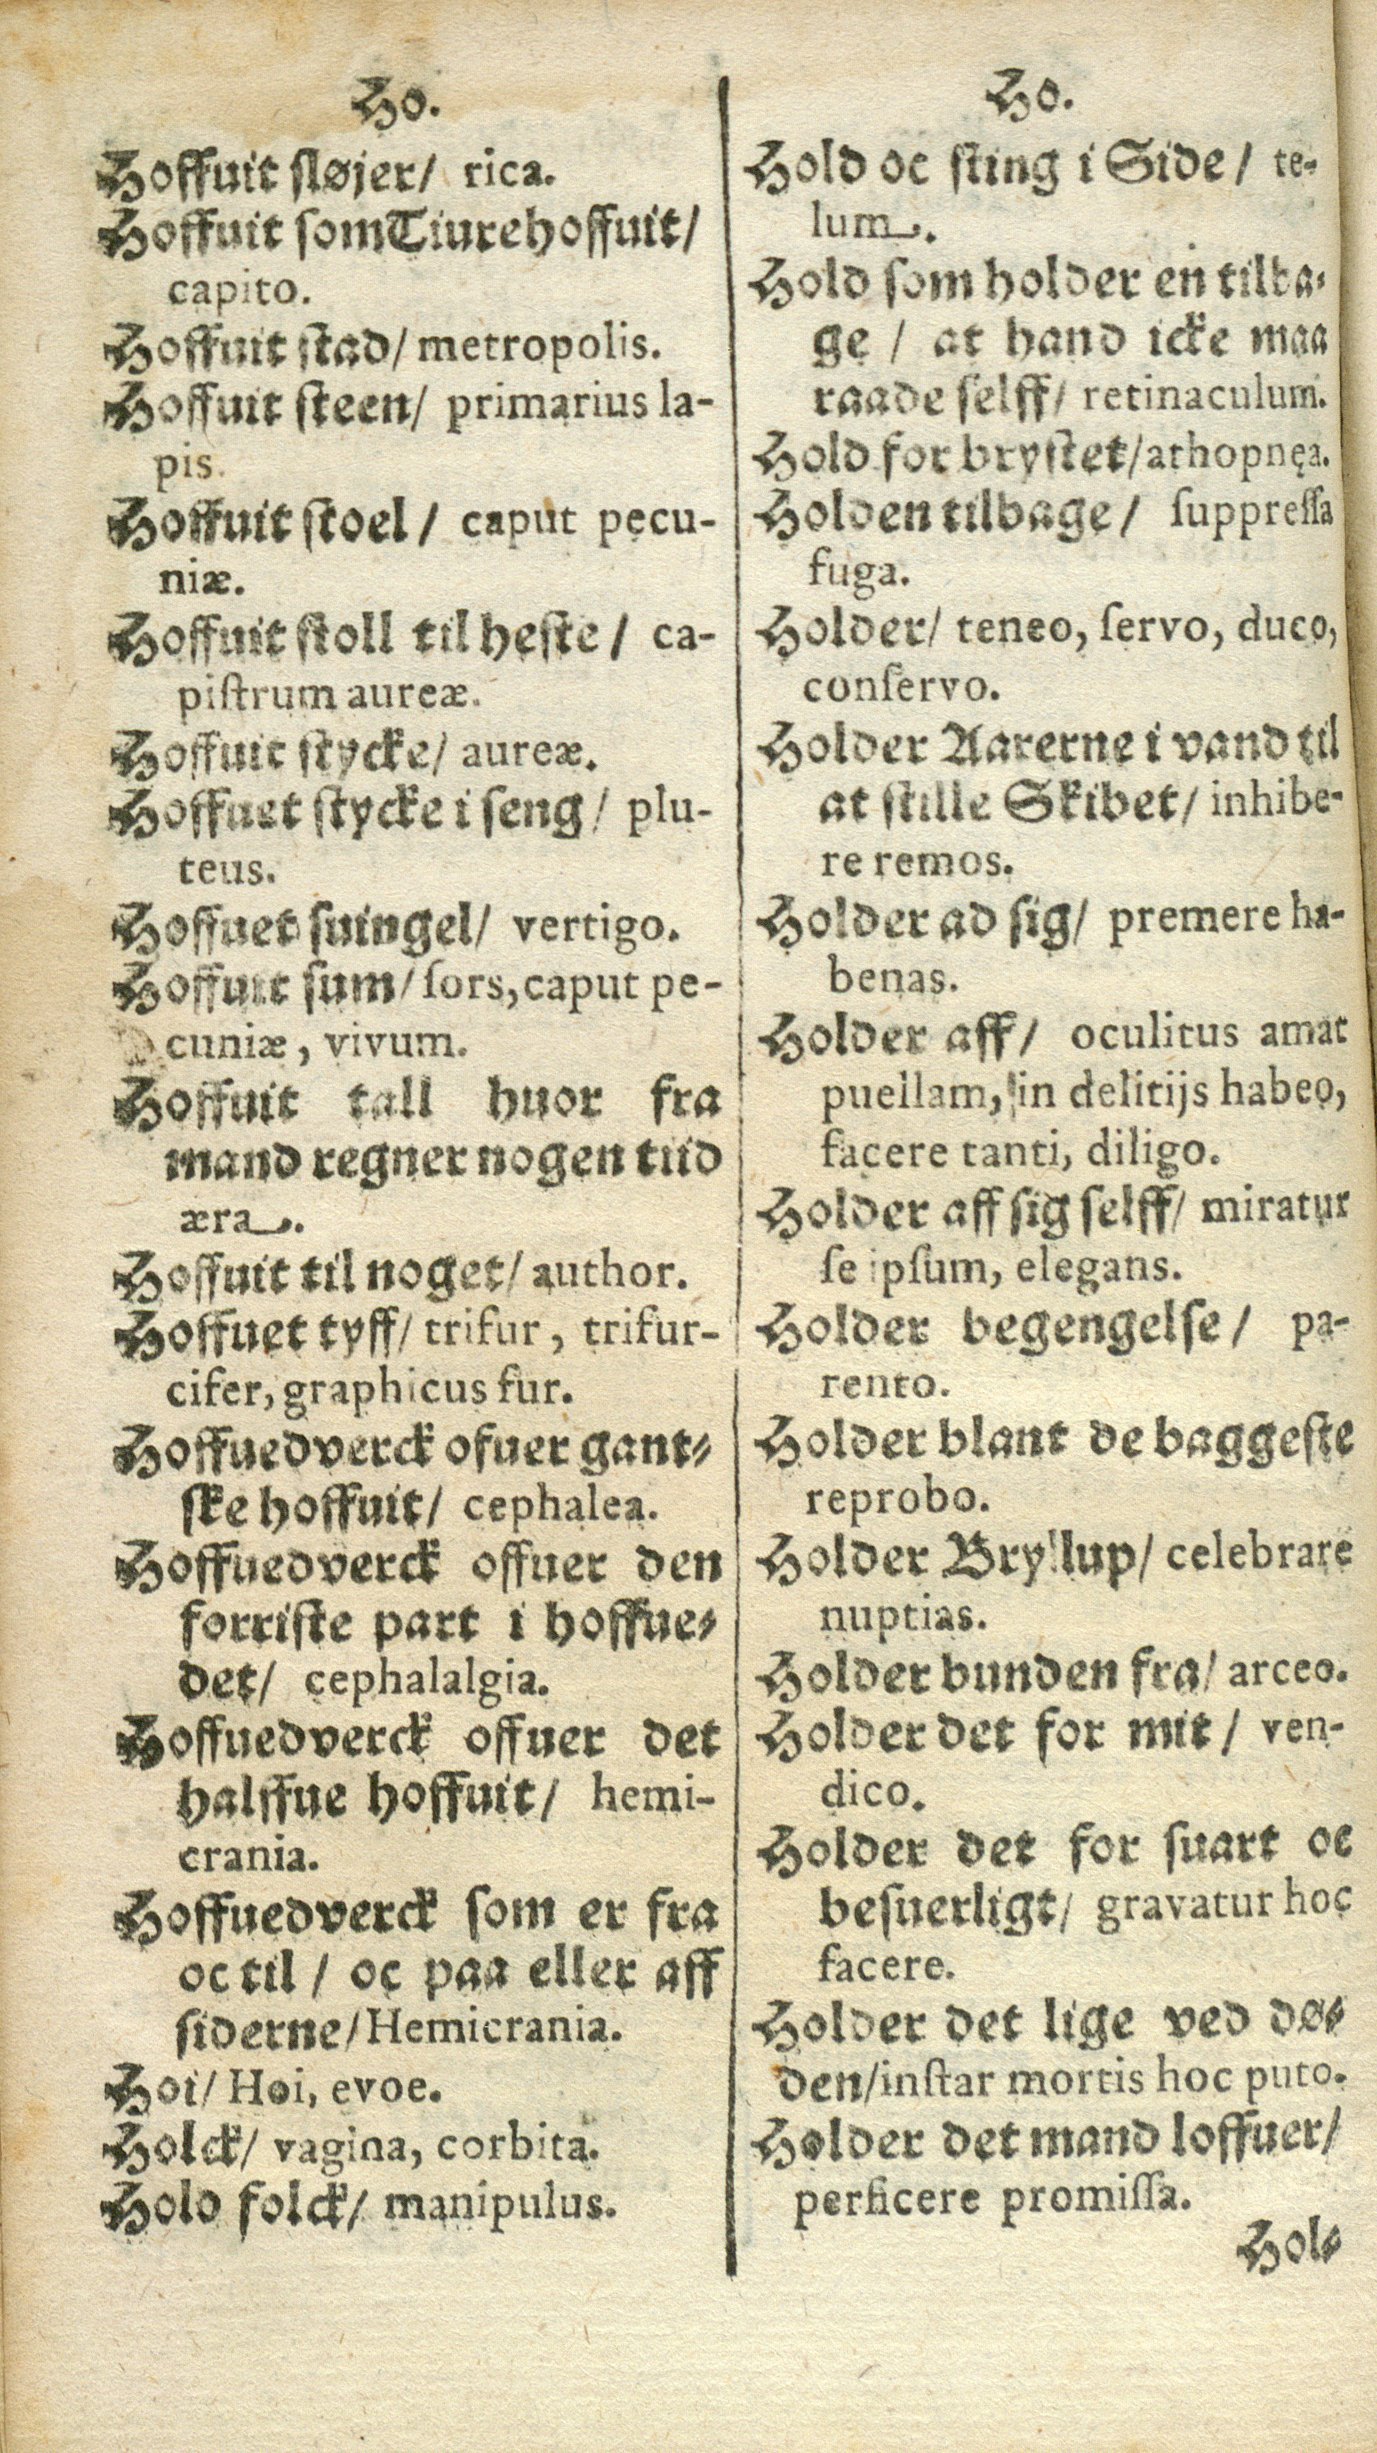 Ho.
Hoffuit sløjer/ rica.
Hoffuit som Tiurehoffuit/
capito.
Hoffuit stad/ metropolis.
Hoffuit steen/ primarius la-
pis.
Hoffuit stoel/ caput pecu-
niæ.
Hoffuit stoll til heste/ ca-
pistrum aureæ.
Hoffuit stycke/ aureæ.
Hoffuet stycke i seng/ plu-
teus.
Hoffuet suingel/ vertigo.
Hoffuit sum/ sors, caput pe-
cuniæ, vivum.
Hoffuit tall huor fra
mand regner nogen tiid
æra.
Hoffuit til noget/ author.
Hoffuet tyff/ trifur, trifur-
cifer, graphicus fur.
Hoffuedverck ofuer gant-
ske hoffuit/ cephalea.
Hoffuedverck offuer den
forriste part i hoffue-
det/ cephalalgia.
Hoffuedverck offuer det
halffue hoffuit/ hemi-
crania.
Hoffuedverck som er fra
oc til/ oc paa eller aff
siderne/ Hemicrania.
Hoi/ Hoi, evoe.
Holck/ vagina, corbita.
Hold folck/ manipulus.
Ho.
Hold oc sting i Side/ te-
lum.
Hold som holder en tilba-
ge/ at hand icke maa
raade selff/ retinaculum.
Hold for brystet/ athopnęa.
Holden tilbage/ suppressa
fuga.
Holder/ teneo, servo, duco,
conservo.
Holder Aarerne i vand til
at stille Skibet/ inhibe-
re remos.
Holder ad sig/ premere ha-
benas.
Holder aff/ oculitus amat
puellam, in delitijs habeo,
facere tanti, diligo.
Holder aff sig selff/ miratur
se ipsum, elegans.
Holder begengelse/ pa-
rento.
Holder blant de baggeste
reprobo.
Holder Bryllup/ celebrare
nuptias.
Holder bunden fra/ arceo.
Holder det for mit/ ven-
dico.
Holder det for suart oc
besuerligt/ gravatur hoc
facere.
Holder det lige ved dø-
den/ instar mortis hoc puto.
Holder det mand loffuer/
perficere promissa.
Hol-